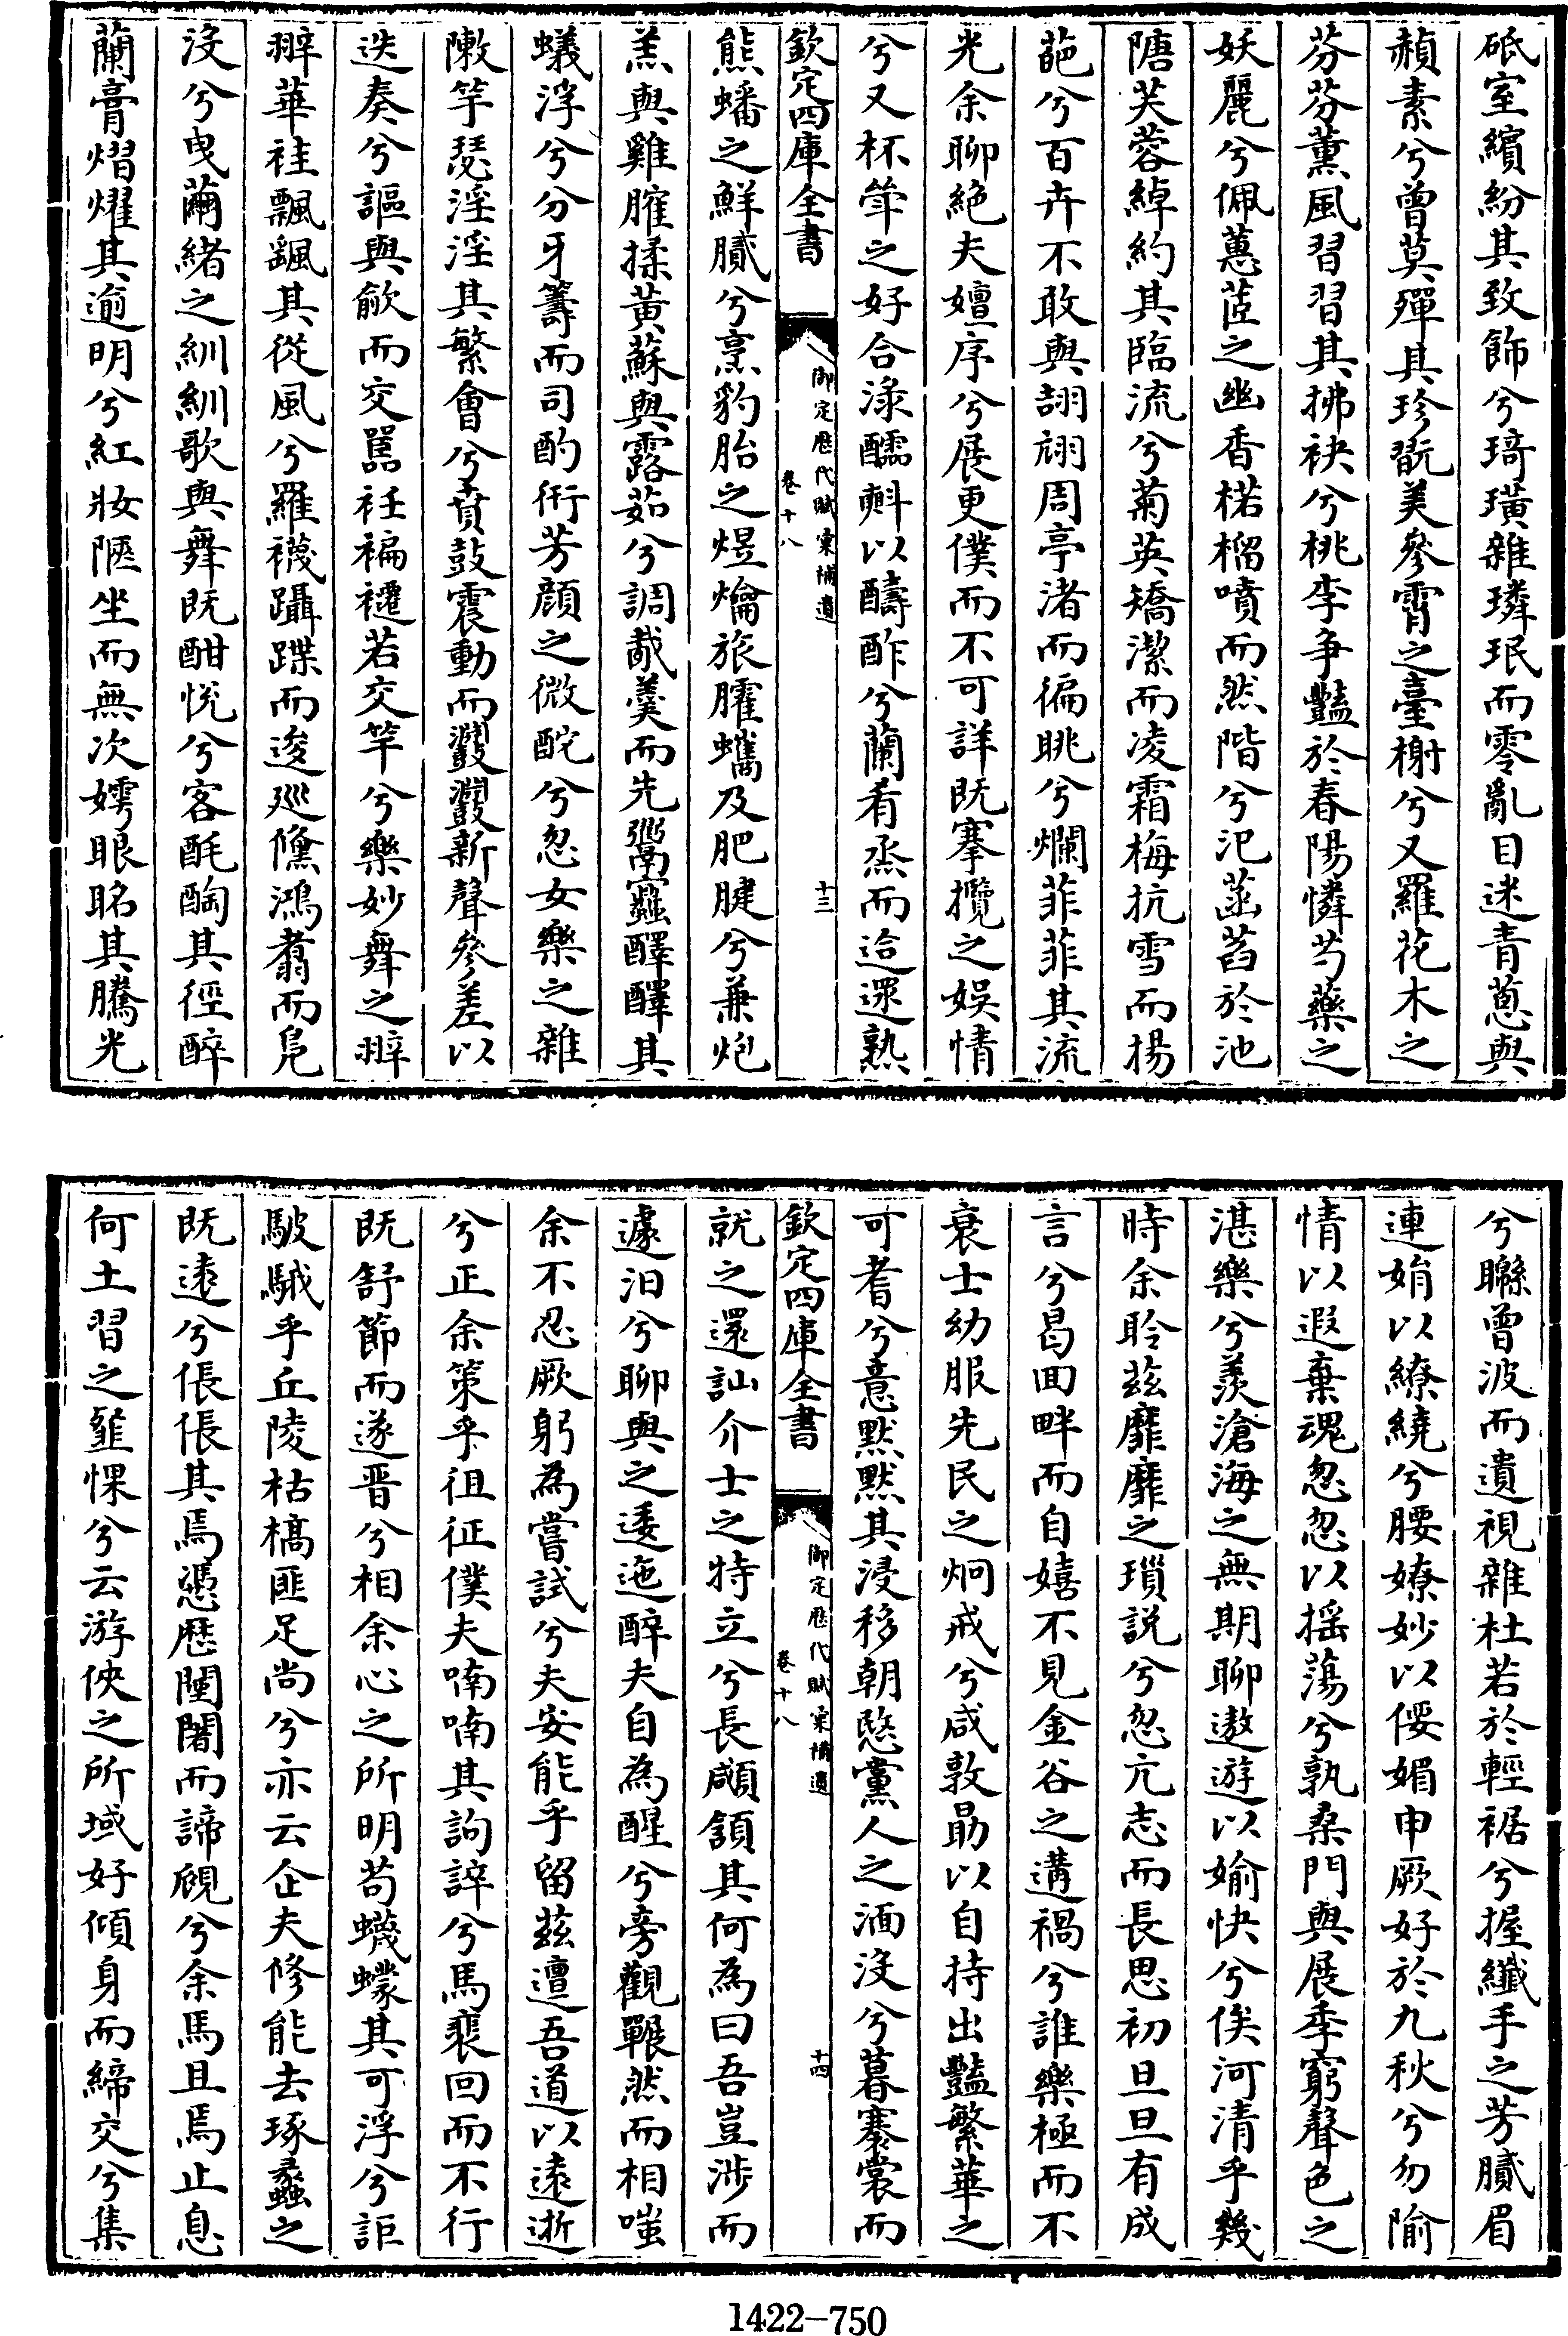 砥室繽紛其致飾兮琦璜雜璘珉而零亂目迷青蔥與
頳素兮曾莫殫其珍翫美參霄之臺榭兮又羅花木之
芬芬薰風習習其拂袂兮桃李争豔於春陽憐芍藥之
妖麗兮佩蕙茝之幽香楉榴噴而然階兮汜菡萏於池
陗芙蓉綽約其臨流兮菊英矯潔而凌霜梅抗雪而揚
葩兮百卉不敢與頡頏周亭渚而徧眺兮爛菲菲其流
光余聊絶夫嬗序兮展更僕而不可詳既搴攬之娱情
兮又杯斝之好合淥醽㪺以醻酢兮蘭肴烝而迨遝熟
欽定四庫全書
御定歷代賦彙補遺
卷十八
十三
熊蟠之鮮膩兮烹豹胎之煜爚旅臛蠵及肥腱兮兼炮
羔與雞臛揉黄蘇與露茹兮調胾羹而先鬻寵醳醳其
蟻浮兮分牙籌而司酌衎芳顔之微酡兮忽女樂之雜
陳竽瑟淫淫其繁會兮賁鼓震動而鼝鼝新聲參差以
迭奏兮謳與歈而交嚚袵褊褼若交竿兮樂妙舞之辩
辩華袿飄颻其從風兮羅襪躡蹀而逡廵儵鴻翥而鳧
沒兮曳繭緒之紃紃歌與舞既酣悦兮客酕醄其徑醉
蘭膏熠燿其逾明兮紅妝陿坐而無次嫮眼眳其騰光
兮聮曾波而遺視雜杜若於輕裾兮握纖手之芳膩眉
連娟以繚繞兮腰嫽妙以偠媚申厥好於九秋兮勿隃
情以遐棄魂忽忽以揺蕩兮孰桑門與展季窮聲色之
湛樂兮羨滄海之無期聊遨遊以媮快兮俟河清乎幾
時余聆茲靡靡之瑣説兮忽亢志而長思初旦旦有成
言兮曷回畔而自嬉不見金谷之遘禍兮誰樂極而不
衰士幼服先民之炯戒兮咸敦勗以自持出豔繁華之
可耆兮意默默其浸移朝愍黨人之湎沒兮暮褰裳而
欽定四庫全書
御定歷代賦彙補遺
卷十八
十四
就之還訕介士之特立兮長顑頷其何為曰吾豈涉而
遽汩兮聊與之逶迤醉夫自為醒兮旁觀囅然而相嗤
余不忍厥躬為嘗試兮夫安能乎留茲邅吾道以逺逝
兮正余策乎徂征僕夫喃喃其訽誶兮馬裴回而不行
既舒節而遂晋兮相余心之所明苟蠛蠓其可浮兮詎
駊騀乎丘陵枯槁匪足尚兮亦云企夫修能去琢蠡之
既逺兮倀倀其焉慿歴闉闍而諦覛兮余馬且焉止息
何土習之韰惈兮云游俠之所域好傾身而締交兮集
1422-750